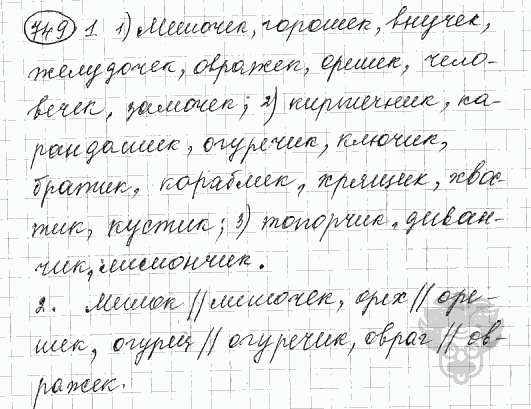 749 1 1) Мешочек, горошек, внучек,
желудочек, овражек, орешек, чело-
вечек, замочек; 2) кирпичник, ка-
рандашик, огуречик, ключик,
братик, кораблик, хрящик, хвос-
тик, кустик; 3) топорчик, диван-
чик, лимончик.
2. Мешок // мешочек, орех // оре-
шек, огурец // огуречик, овраг // ов-
ражек.